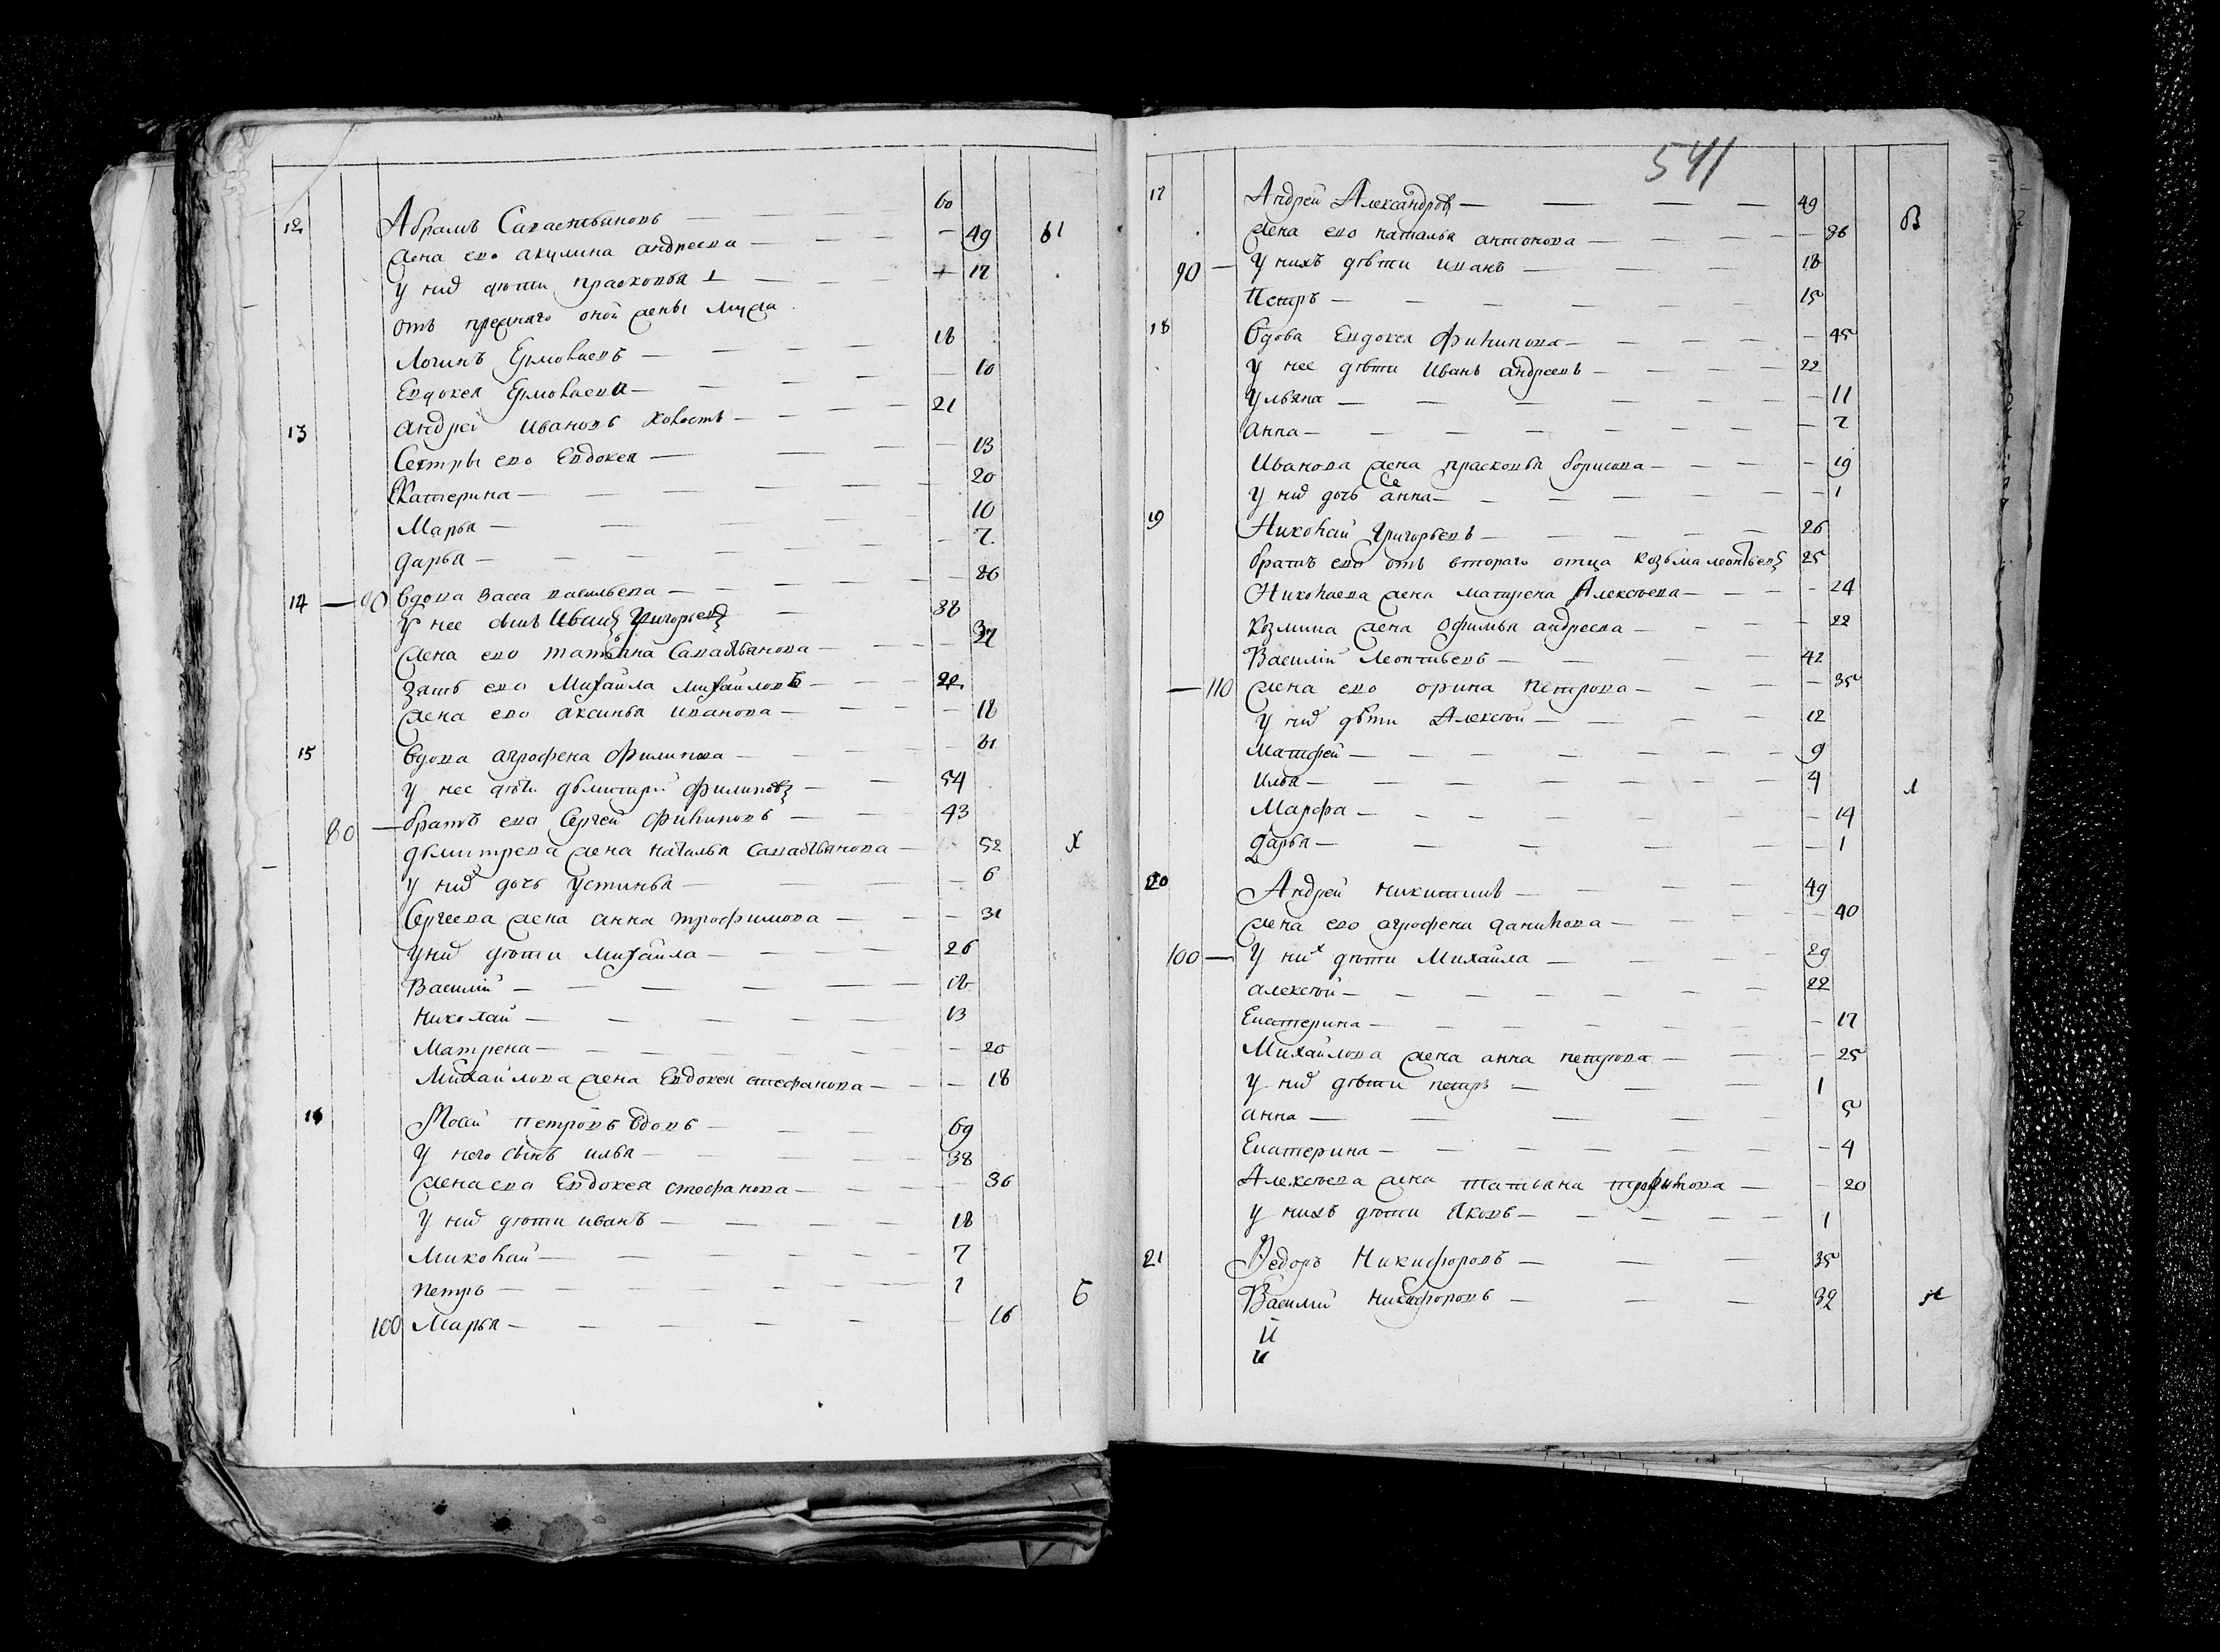 12 Абрамъ Савастьановъ — — 60
жена ево акулина андреева — — — — 49 ы
у них дѣти прасковья — — 17
отъ прежнаго оной жены мужа
Логинъ Ермолаевъ — — — — 18
Евдокея Ермолаева — — — — 10
13 андрей Ивановъ холостъ — — — 21
Сестры ево Евдокея — — — — 13
Катерина — — — — — 20
Марья — — — 10
дарья — — — — — 7
14 — вдова васа васильева — — — — 86
У нее сынъ Иванъ Григорьевъ — 38
жена ево татьяна Савастьанова — — — 37
зять ево Михайла михайловъ — — — 22
жена ево аксинья иванова — — — — 18
15 вдова агрофена филипова — — — — 61
у нее дѣти дьмитрей филиповъ — — 54
80 — братъ ево Сергей филиповъ — — 43
дьмитрева жена наталья савастьанова — 52 х
у них дочь устинья — — — — 6
Сергеева жена анна трофимова — — — 31
у них дѣти михайла — — — 26
Василий — — — — — 16
николай — — — — — 13
матрена — — — — — 20
Михайлова жена Евдокея стефанова — — — 18
16 Мосей петровъ вдовъ — — — 69
У него сынъ илья — — — — 38
жена ево Евдокея стефанова — — — — 36
у них дѣти иванъ — — — — 18
миколай — — — — — 7
петръ — — — — — 1 Б
100 Марья — — — — — — 16
541
17 Андрей Александровъ — — — — 49
жена ево наталья антонова — — — — 36 В
90 — У нихъ дѣти иванъ — — — 18
петръ — — — — — 15
18 вдова Евдокея филипова — — — — 45
у нее дѣти Иванъ андреевъ — — — 22
ульяна — — — — — — 11
анна — — — — — — 7
Иванова жена прасковья борисова — — — — 19
у них дочь анна — — — — — 1
19 Николай Григорьевъ — — — — 26
братъ ево отъ втораго отца козьма леонтьевъ 25
Николаева жена матрена Алексѣева — — — — 24
козмина жена офимья андреева — — — — 22
Василий леонтьевъ — — — — 42
— 110 жена ево орина петрова — — — — 35
у них дѣти Алексѣй — — — — 12
матфей — — — — — — 9
илья — — — — — — 4 л
Марфа — — — — — — 14
дарья — — — — — 1
20 Андрей никитинъ — — — — 49
жена ево агрофена данилова — — — — 40
100 — У них дѣти Михайла — — — 29
алексѣй — — — — — — 22
Екатерина — — — — — — 17
Михайлова жена анна петрова — — — 25
у них дѣти петръ — — — 1
анна — — — — — 5
Екатерина — — — — — — 4
Алексѣева жена татьяна — — 20
у нихъ дѣти яковъ — — — — — 1
21 Федоръ Никифоровъ — — — 35
Василий никифоровъ — — — 32